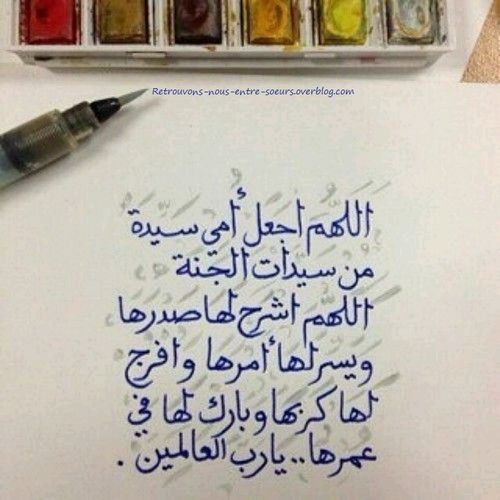 Retrouvons-nous-entre-soeurs.overblog.com
اللهم اجعل أمي سيدة
من سيدات الجنة
اللهم اشرح لها صدرها
ويسر لها أمرها وافرج
لها كربها وبارك لها في
عمرها.. يارب العالمين.